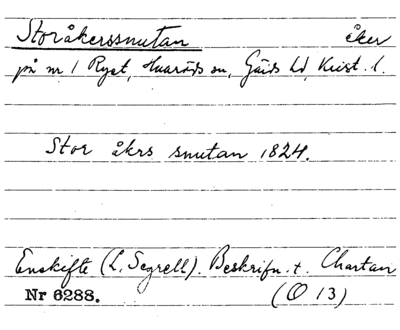 Storåkerssnutan åker
på nr 1 Ryet, Huaröds sn, Gärds hd, Krist. l.
Stor åkrs snutan 1824.
Enskifte (L. Segrell). Beskrifn. t. Chartan
Nr 6288. (O 13)